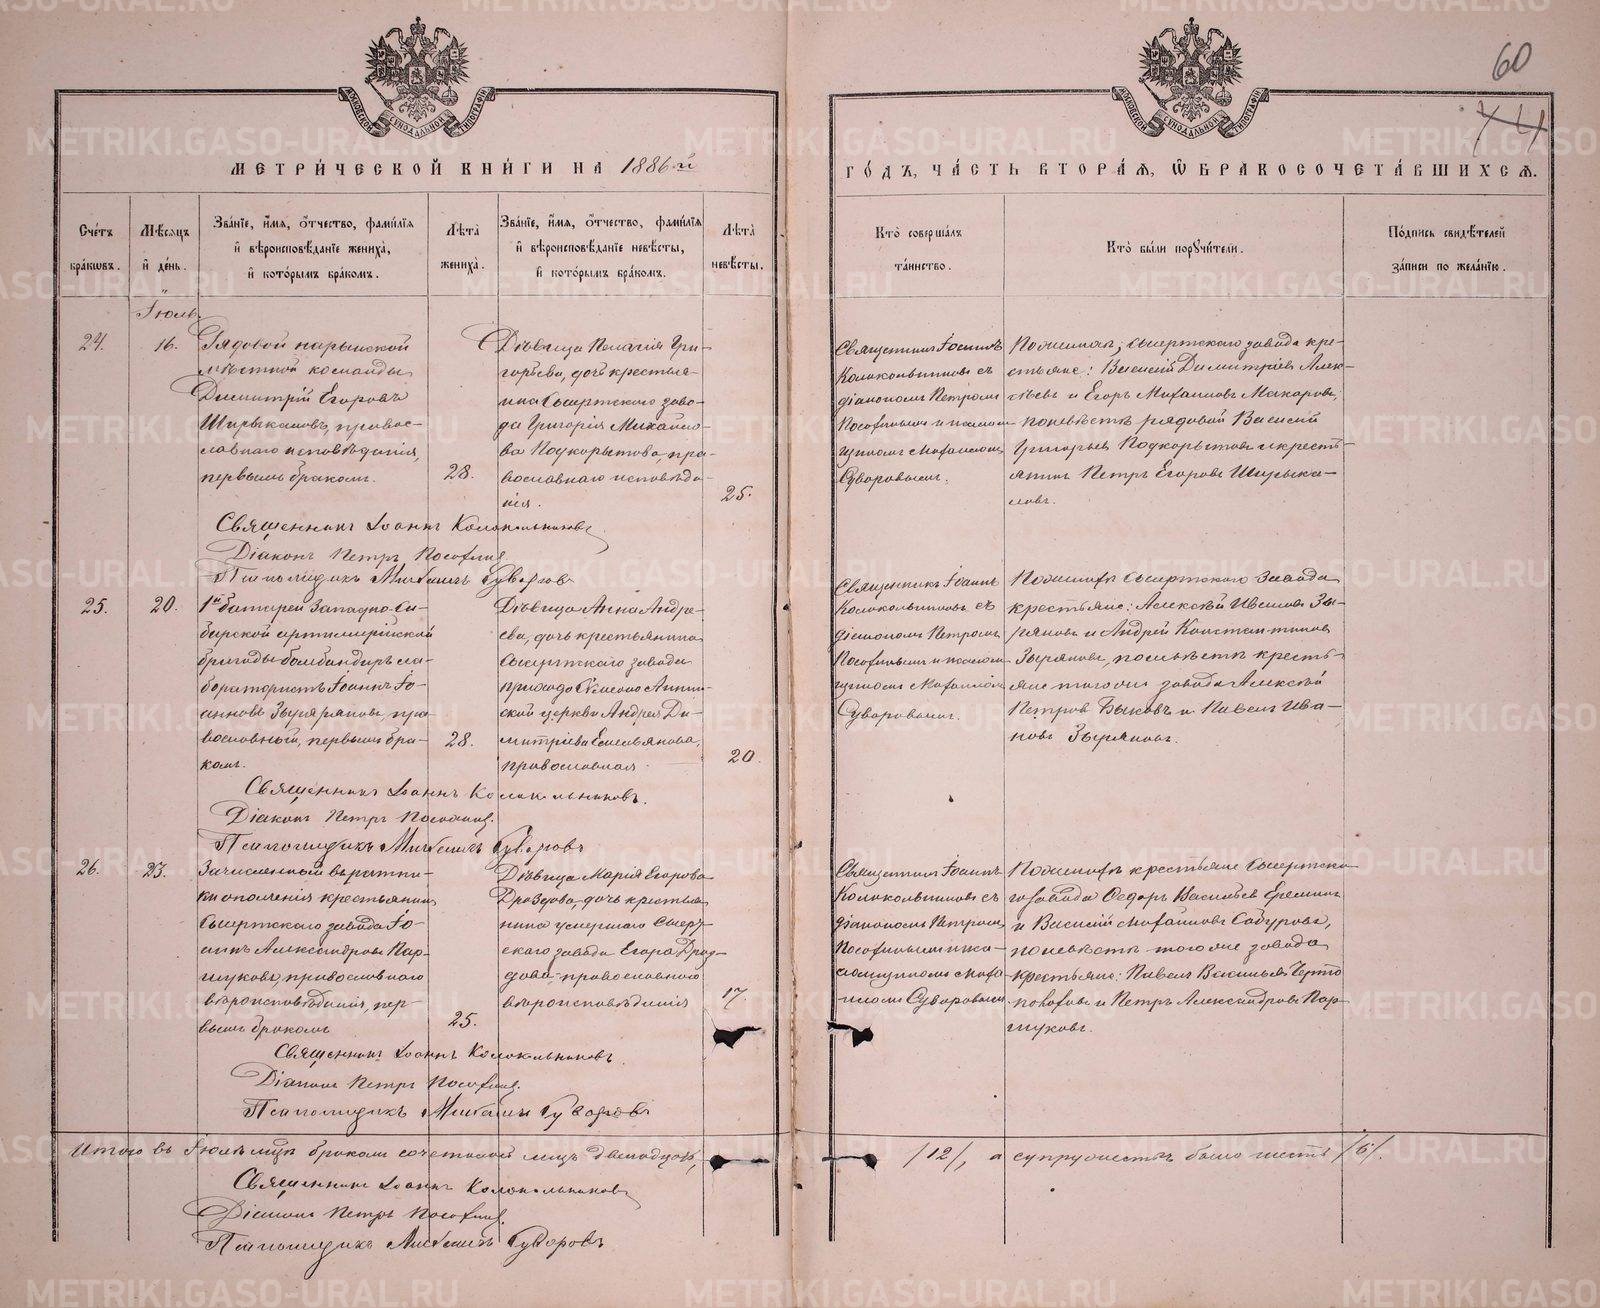 60
74
МЕТРИ́ЧЕСКОЙ КНИ́ГИ НА 1886-й
ГО́ДЪ, ЧА́СТЬ ВТОРА́Я, Ѡ БРАКОСОЧЕТА́ВШИХСЯ.
Сче́тъ браковъ.
Мѣсяцъ и де́нь.
Зва́нїе, и́мя, о́тчество, фами́лїя и вѣроисповѣданїе жениха̀, и кото́рымъ бра́комъ.
Лѣта̀ жениха̀.
Зва́нїе, и́мя, о́тчество, фами́лїя и вѣроисповѣданїе невѣсты, и кото́рымъ бра́комъ.
Лѣта̀ невѣсты.
Кто̀ соверша́лъ та́инство.
Кто̀ бы́ли поручи́тели.
По́дпись свидѣтелей за́писи по жела́нїю.
Іюль.
24.
16.
Рядовой нарымской
мѣстной команды
Димитрій Егоровъ
Ширыкаловъ, правос-
славнаго исповѣданія,
первымъ бракомъ.
28.
Дѣвица Пелагія Гри-
горьева, дочь крестья-
нина Сысертскаго заво-
да Григорія Михайло-
ва Подкорытова, пра-
вославнаго исповѣда-
нія.
25.
Священникъ Іоаннъ
Колокольниковъ съ
діакономъ Петромъ
и псалом-
щикомъ Михаиломъ
Суворовымъ.
По женихѣ; Сысертскаго завода кре-
стьяне: Василій Димитріевъ Алек-
сѣевъ и Егоръ Михаиловъ Макаровъ;
по невѣстѣ рядовой Василій
Григорьевъ Подкорытовъ и кресть-
янинъ Петръ Егоровъ Ширыка-
ловъ.
Священникъ Іоаннъ Колокольниковъ
Діаконъ Петръ
Псаломщикъ Михаилъ Суворовъ
25.
20.
1й батареи Западно-Си-
бирской артиллерійской
бригады бомбандиръ ла-
боратористъ Іоаннъ Іо-
анновъ Зыряновъ, пра-
вославный, первымъ бра-
комъ.
28.
Дѣвица Анна Андре-
ева, дочь крестьянина
Сысертскаго завода
прихода Симеоно-Аннин-
ской церкви Андрея Ди-
митріева Емельянова,
православная
20.
Священникъ Іоаннъ
Колокольниковъ съ
діакономъ Петромъ
и псалом-
щикомъ Михаиломъ
Суворовымъ.
По женихѣ Сысертскаго завода
крестьяне: Алексѣй Ивановъ Зы-
ряновъ и Андрей Константиновъ
Зыряновъ, по невѣстѣ кресть-
яне того же завода Алексѣй
Петровъ Быковъ и Павелъ Ива-
новъ Зыряновъ.
Священникъ Іоаннъ Колокольниковъ.
Діаконъ Петръ
Псаломщикъ Михаилъ Суворовъ
26.
23.
Зачисленный въ ратни-
ки ополченія крестьянинъ
Сысертскаго завода Іо-
аннъ Александровъ Пар-
шуковъ, православнаго
вѣроисповѣданія, пер-
вымъ бракомъ
25.
Дѣвица Марія Егорова
Дроздова, дочь крестья-
нина умершаго Сысерт-
скаго завода Егора Дроз-
дова, православнаго
вѣроисповѣданія
17.
Священникъ Іоаннъ
Колокольниковъ съ
діакономъ Петромъ
и пса-
ломщикомъ Миха-
иломъ Суворовымъ.
По женихѣ крестьяне Сысертска-
го завода Ѳедоръ Васильевъ Ереминъ
и Василій Михаиловъ Сабуровъ,
по невѣстѣ того же завода
крестьяне: Павелъ Васильевъ Черто-
и Петръ Александровъ Пар-
шуковъ.
Священникъ Іоаннъ Колокольниковъ.
Діаконъ Петръ
Псаломщикъ Михаилъ Суворовъ
Итого въ Іюлѣ мцѣ бракомъ сочетаной лицъ двенадцать, /12/, а супружествъ было шесть /6/.
Священникъ Іоаннъ Колокольниковъ
Діаконъ Петръ
Псаломщикъ Михаилъ Суворовъ
METRIKI.GASO-URAL.RU